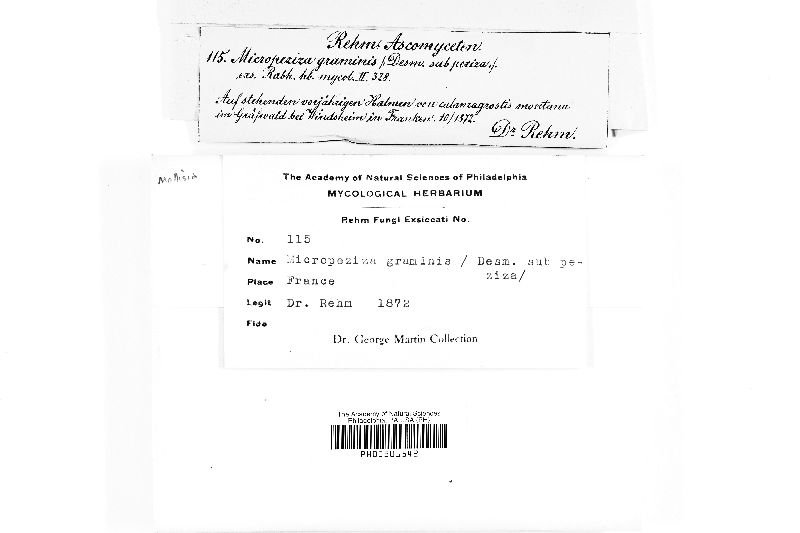 Rehm: Ascomyceten.
115. Micropeziza graminis /Desm. sub peziza/.
exs. Rabh. hb. mycol. II. 328.
Auf stehenden vorjährigen Halmen von calamagrostis montana
im Gräfwald bei Windsheim in Franken. 10/1872.
Dr. Rehm.
Mollisia
The Academy of Natural Sciences of Philadelphia
MYCOLOGICAL HERBARIUM
Rehm Fungi Exsiccati No.
No. 115
Name Micropeziza graminis / Desm. sub pe-
ziza/
Place France
Legit Dr. Rehm 1872
Fide
Dr. George Martin Collection
The Academy of Natural Sciences
Philadelphia, PA, USA (PH)